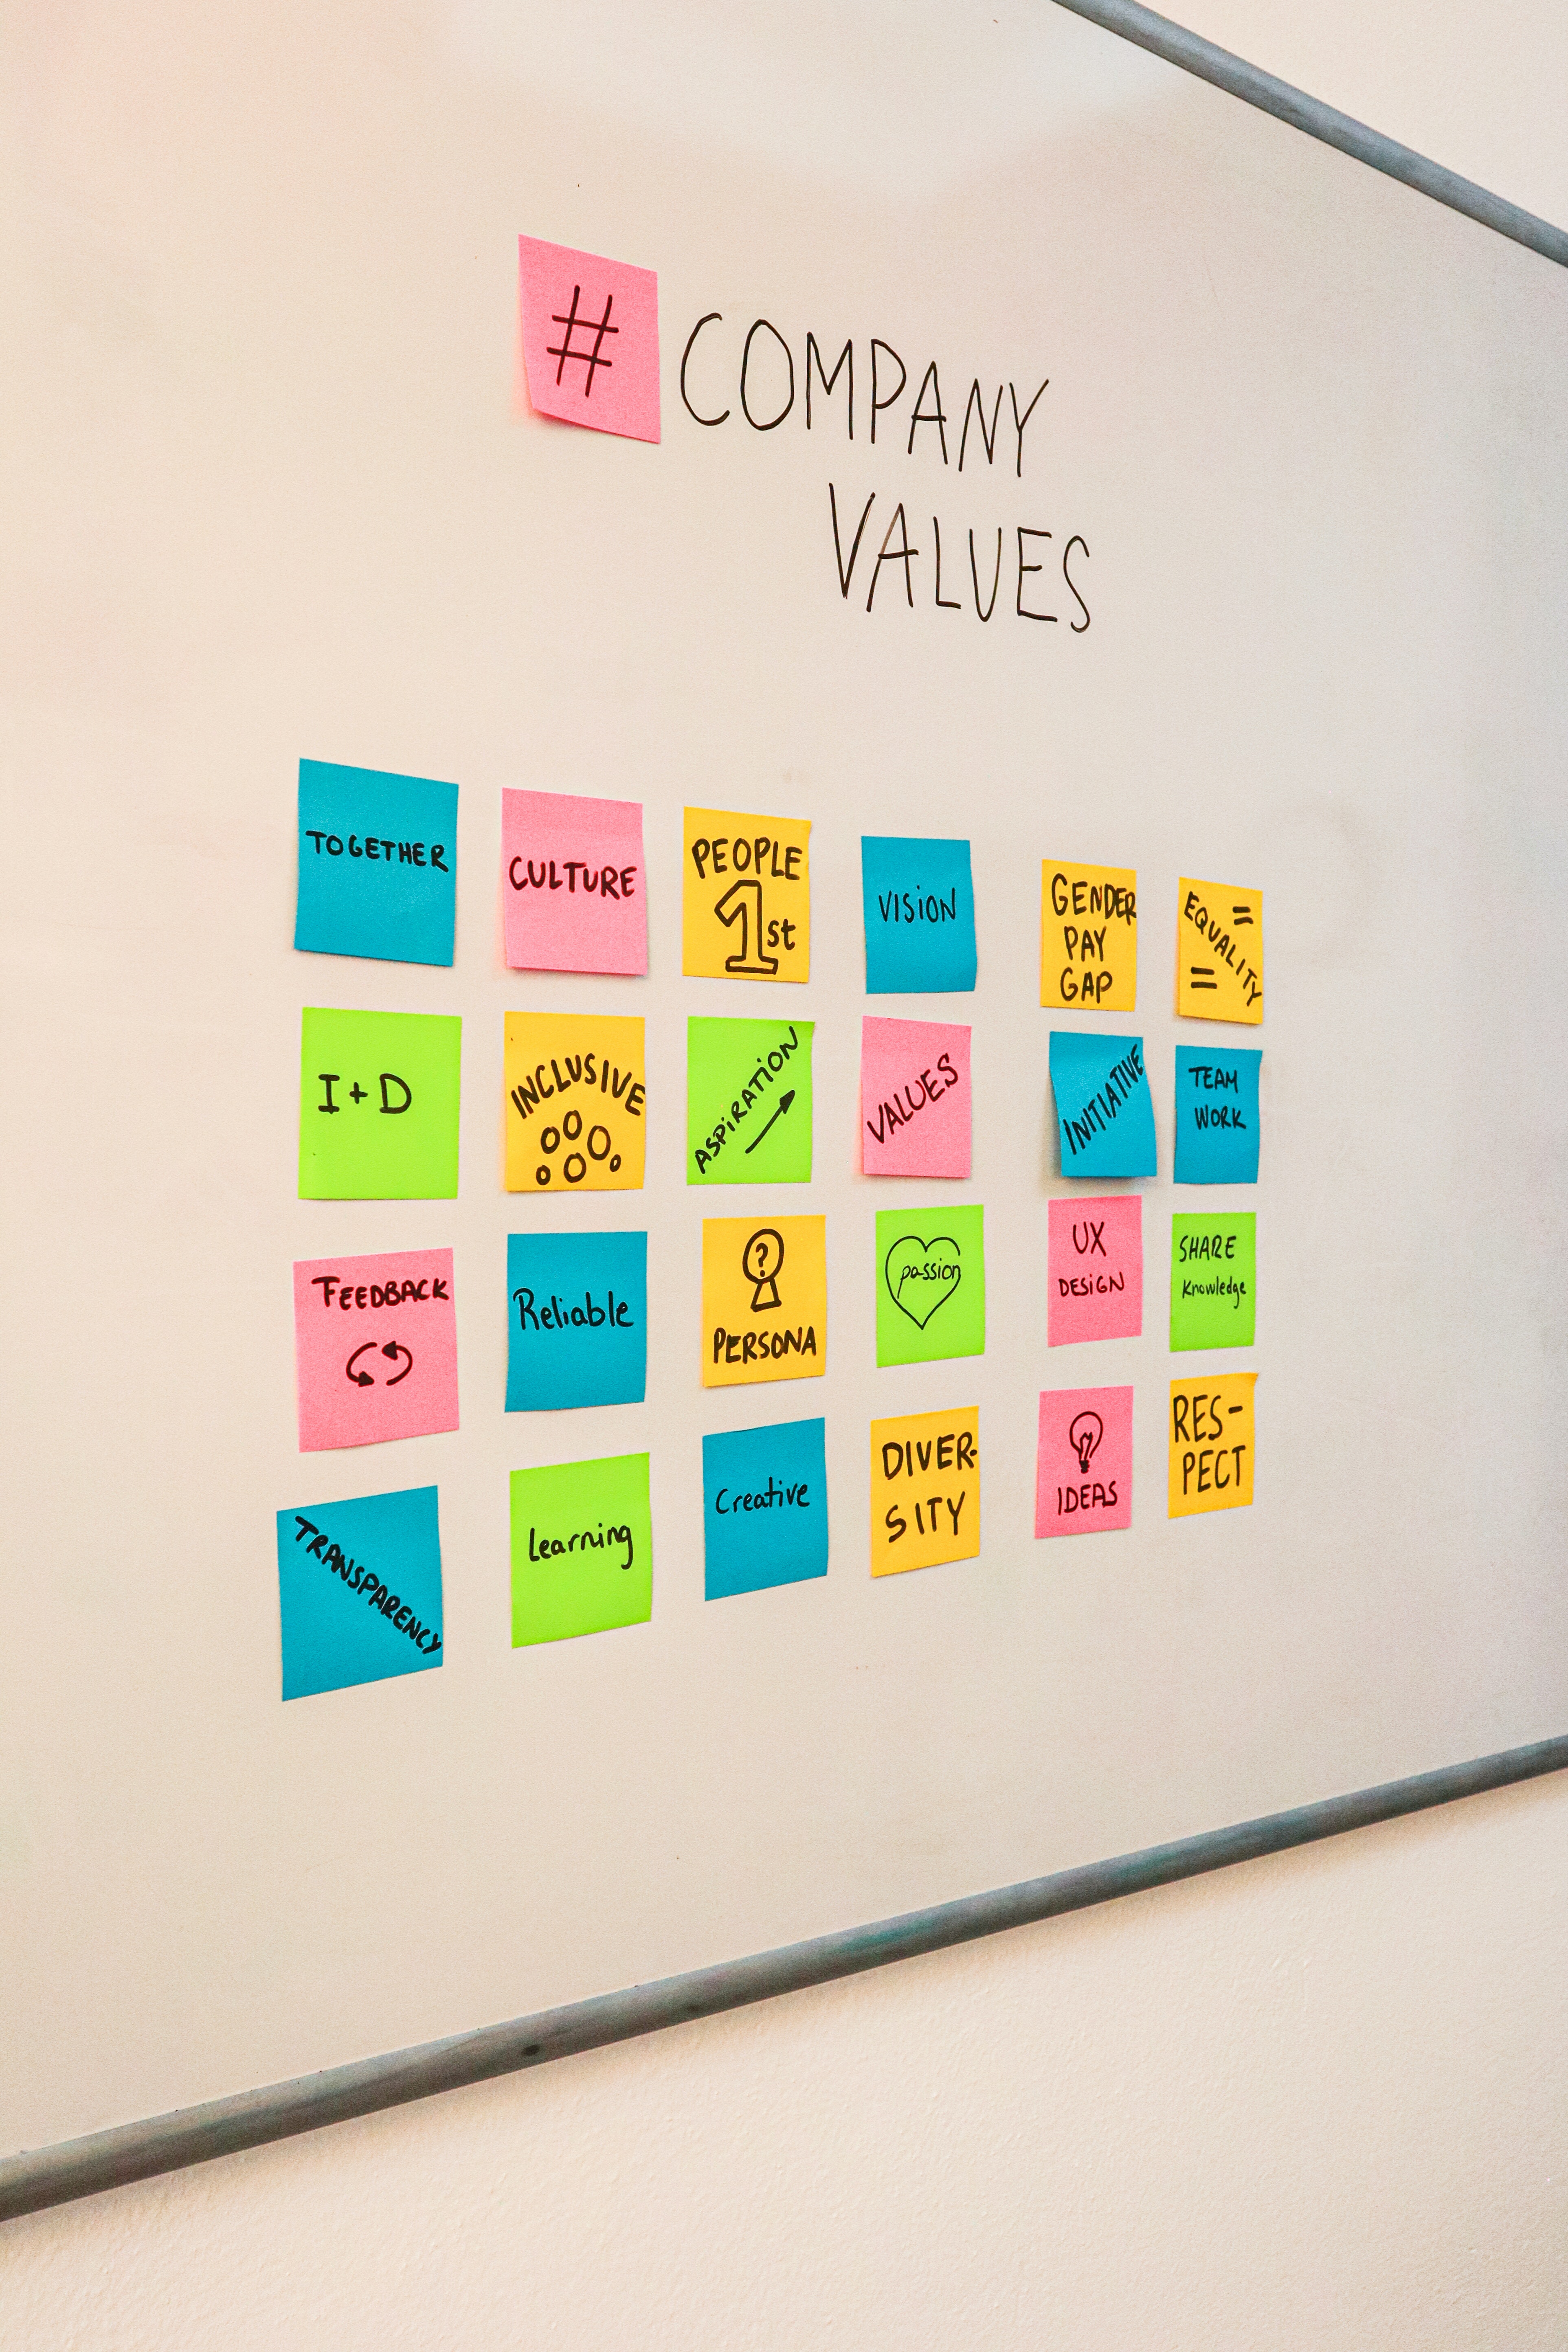 # COMPANY
VALUES
TOGETHER
CULTURE
PEOPLE
1st
VISION
GENDER
PAY
GAP
=
EQUALITY
=
I+D
INCLUSIVE
ASPIRATION
VALUES
INITIATIVE
TEAM
WORK
FEEDBACK
Reliable
?
PERSONA
passion
UX
DESIGN
SHARE
Knowledge
TRANSPARENCY
Learning
Creative
DIVER-
SITY
IDEAS
RES-
PECT